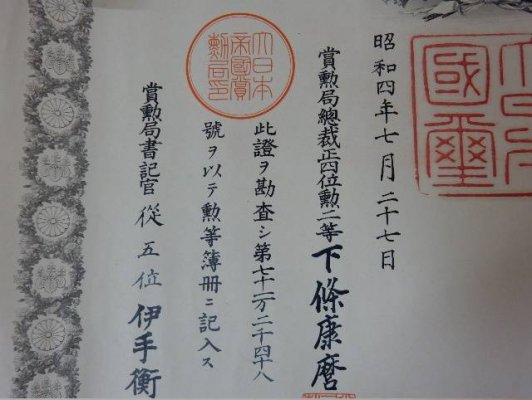 大日本
國璽
昭和四年七月二十七日
賞勲局總裁正四位勲二等下條康麿
大日本
帝國賞
勲局印
此證ヲ勘査シ第七十一万二千四十八
號ヲ以テ勲等簿册ニ記入ス
賞勲局書記官從五位伊手衡